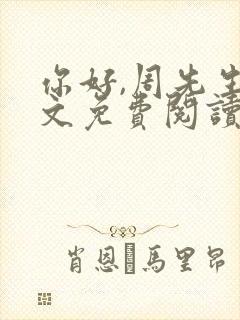 你好,周先生
文免費閱讀
肖恩·馬里昂